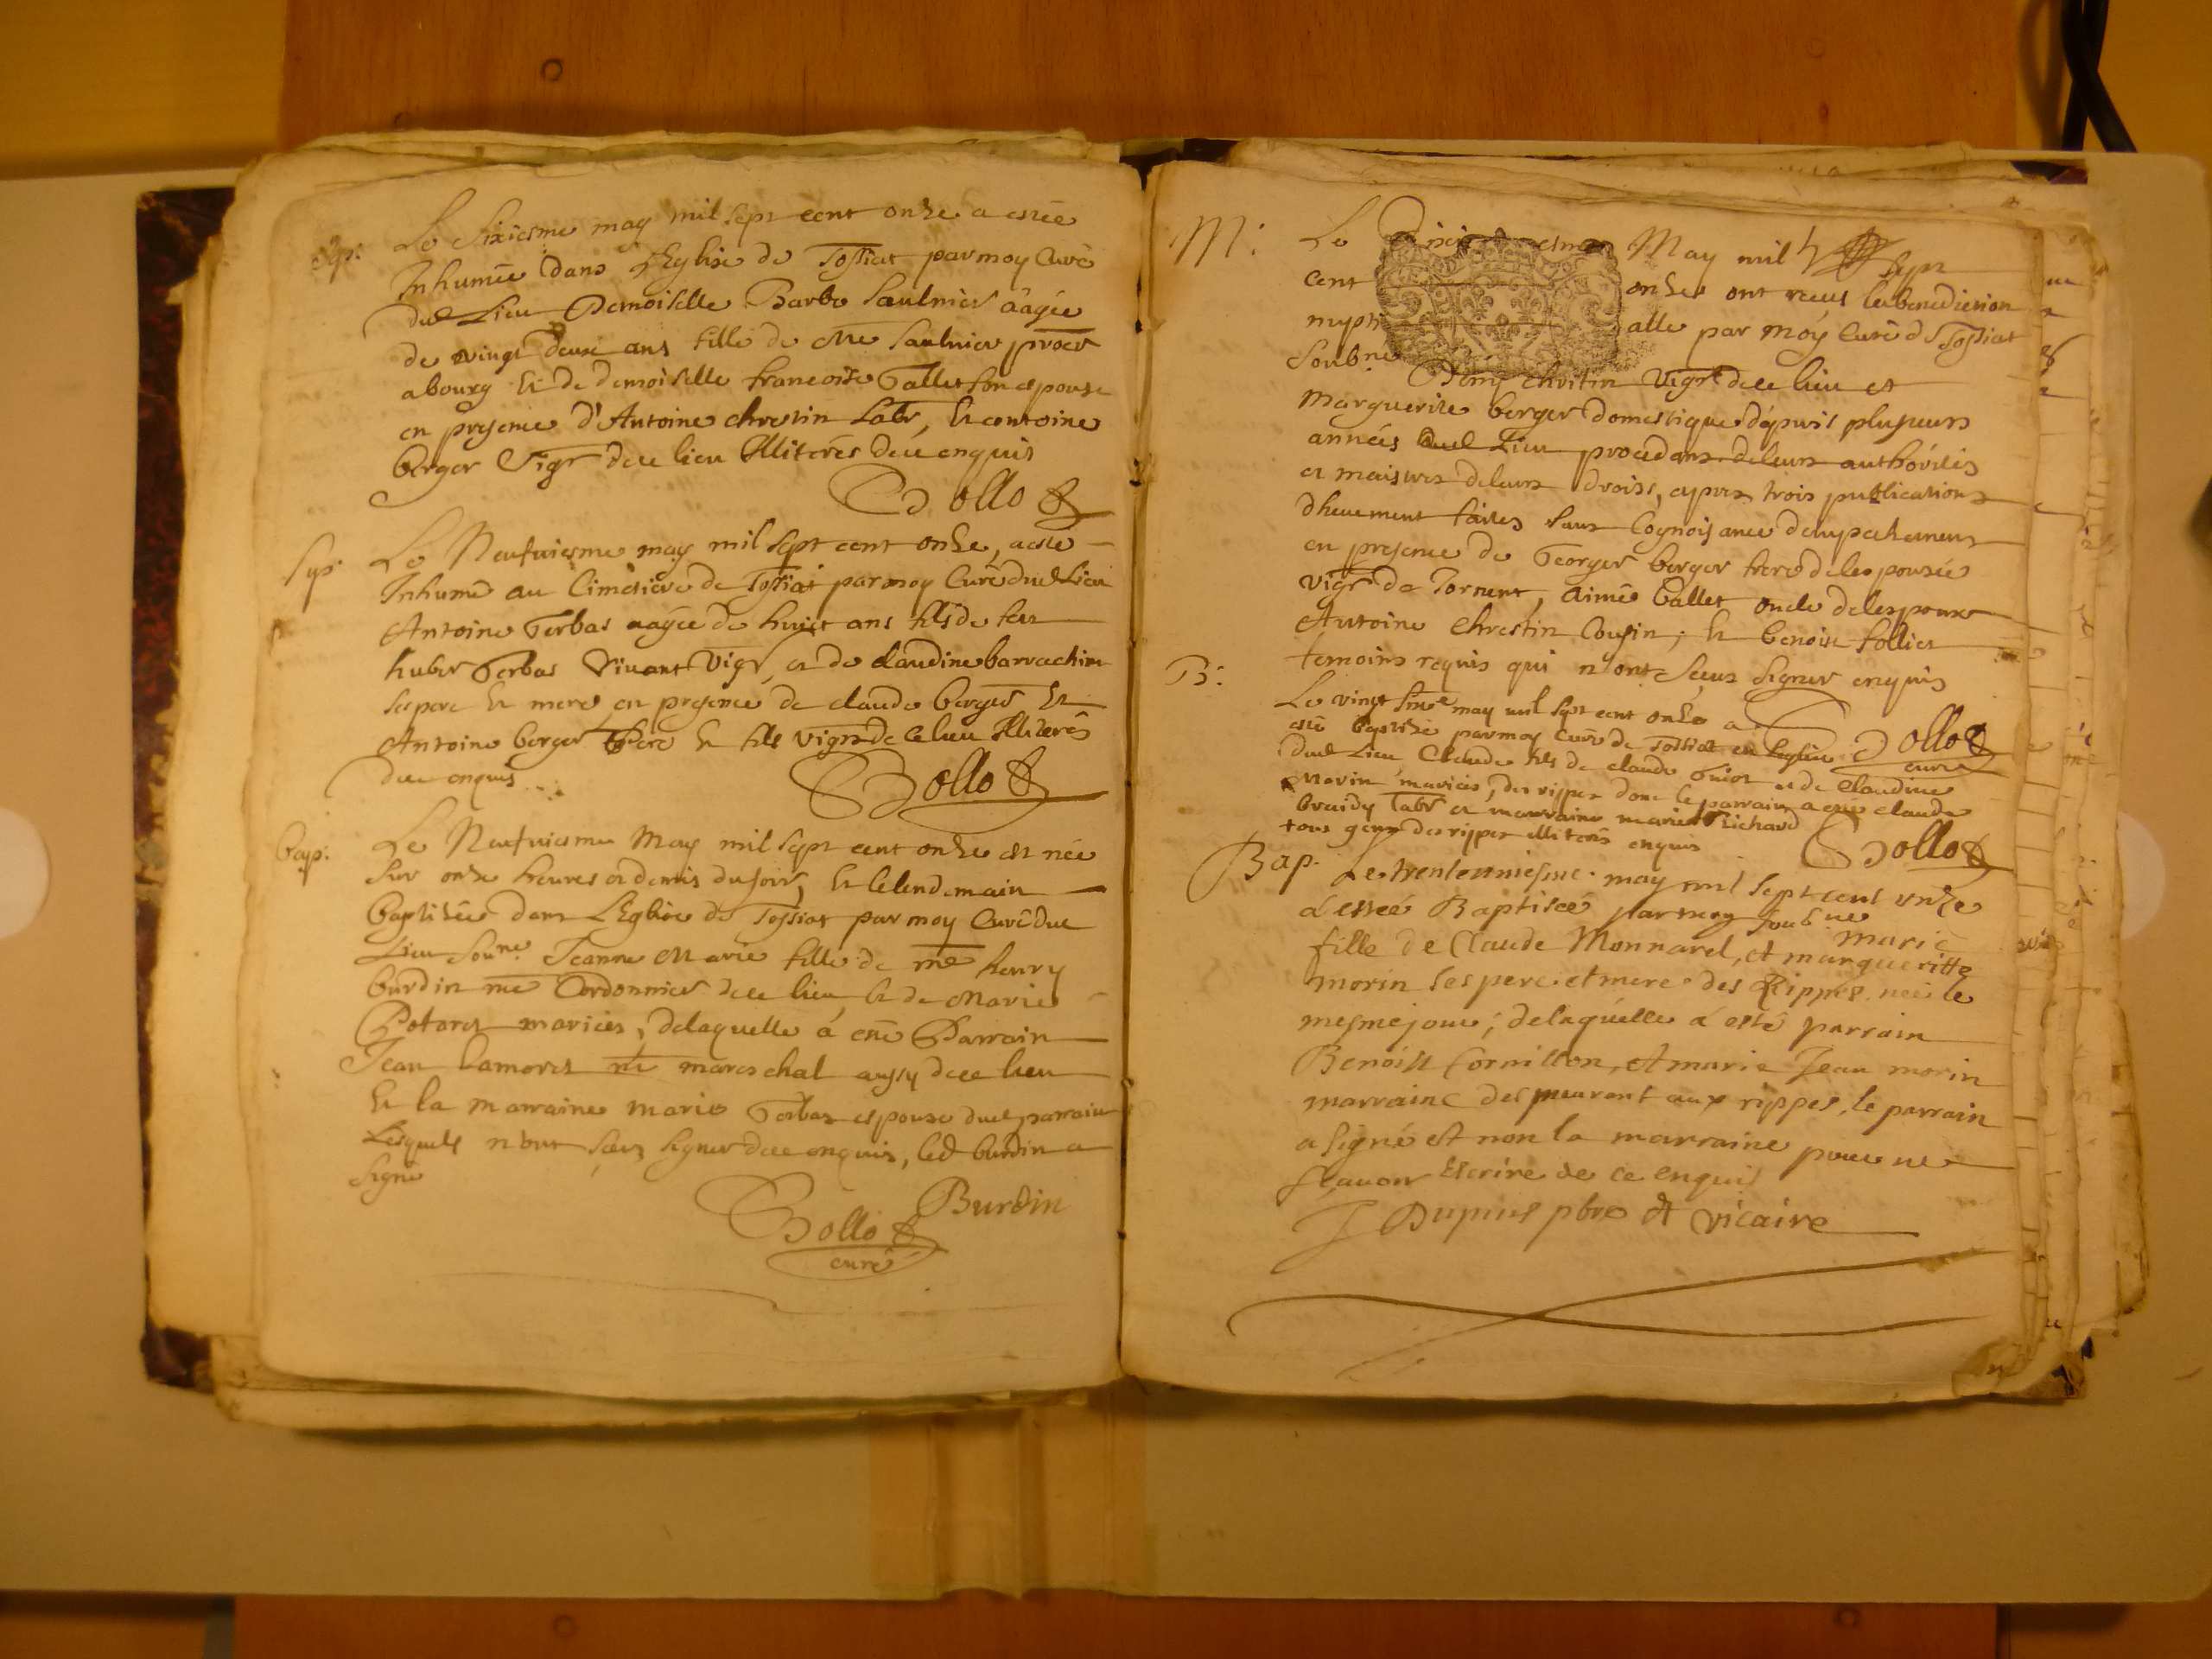 Sep: Le Sixiesme may mil sept cent onze a estée
Inhumée dans L'Eglise de Tossiat par moy Curé
dud Lieu Demoiselle Barbe Saulnier aagée
de vingt deux ans fille de Me Saulnier procr
a bourg Et de demoiselle francoise Gallet son espouse
en presence d'Antoine chrestin Labr, Et antoine
berger Vigr de ce lieu Illiterés de ce enquis
Dollo
Sep: Le Neufviesme may mil sept cent onze, a esté
Inhumé au Cimetiere de Tossiat par moy Curé dud Lieu
Antoine Gerbas aagée de huict ans fils de feu
huber Gerbas Vivant Vigr, et de claudine barrachin
ses pere Et mere, en presence de claude berger Et
Antoine berger Pere Et fils vigrs de ce lieu Illiterés
de ce enquis
Dollo
Bap: Le Neufviesme May mil sept cent onze est née
sur onze heures et demis du soir, Et le lendemain
baptisée dans L'Eglise de Tossiat par moy Curé dud
Lieu Sou.ne Jeanne Marie fille de me henry
burdin me Cordonnier de ce lieu, Et de Marie
mariés, de laquelle à esté Parrain
Jean Lamoret me mareschal aussy de ce lieu
Et la marraine marie Gerbas espouse dud parrain
Lesquels n'ont sceu signer de ce enquis, led burdin a
signé
Burdin
Dollo
curé
M: Le May mil sept
cent onze ont receus la benediction
nupti alle par moy Curé de Tossiat
Soub.ne Remy chrestin Vigr de ce lieu et
Marguerite berger domestique depuis plusieurs
années dud Lieu procedans de leurs authorités
et maistres de leurs droits, apres trois publications
dheuement faites sans Cognoisance d'empechement
en presence de George berger frere de les pousée
vigr de Tornent, aimé Gallet oncle de lespoux
Antoine Chrestin Cousin, Et benoit follier
temoins requis qui n'ont sceus signer enquis
Dollo
curé
B: Le vingt may mil sept cent onze a
esté baptisé par moy Curé de Tossiat en L'eglise
dud Lieu Claude fils de claude Guiot et de Claudine
Morin mariés, des rippes dont le parrain a esté claude
braidy Labr et marraine marie Richard
tous gens des rippes illiterés enquis
Dollo
Bap. Le trenteuniesme may mil sept cent unze
a estée Baptisée par moy soub.ne marie
fille de Claude Monnarel, et margueritte
morin ses pere et mere des Rippes née le
mesme jour; delaquelle a esté parrain
Benoist Cornillon, et marie Jean morin
marraine demeurant aux rippes, le parrain
a signé et non la marraine pour ne
sçavoir Escrire de ce enquis
J Dupuis pbre et vicaire